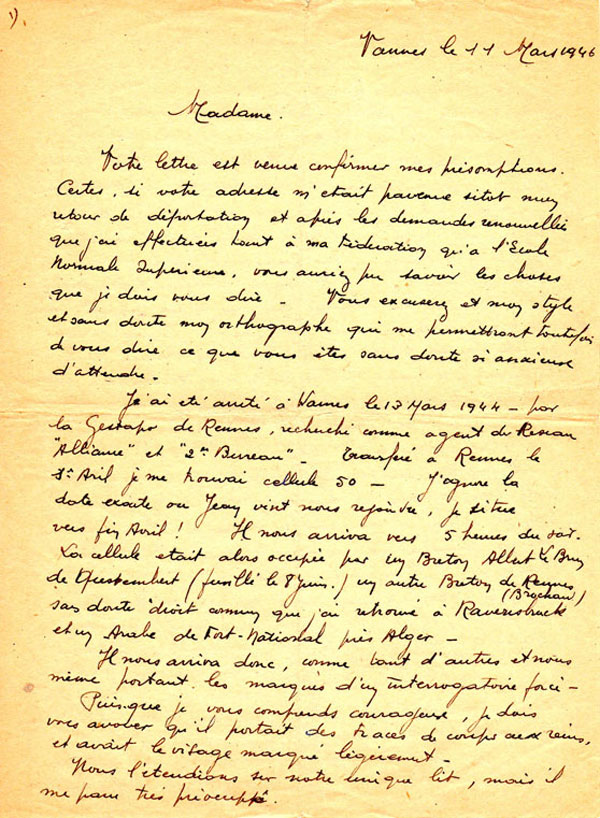 1).
Vannes le 11 Mars 1946
Madame.
Votre lettre est venue confirmer mes présomptions.
Certes, si votre adresse m'était pavenue sitot mon
retour de déportation et après les demandes renouvellée
que j'ai effectuées tant à ma Fédération qu'a l'Ecole
Normale Superieure, vous auriez pu savoir les choses
que je dois vous dire - Vous excuserez et mon style
et sans doute mon orthographe qui me permettront toutefois
d vous dire ce que vous êtes sans doute si anxieuse
d'attendre.
J'ai été arrêté à Vannes le 13 Mars 1944 - par
la Gestapo de Rennes, recherché comme agent du Reseau
"Alliance" et "2e Bureau" - Transféré à Rennes le
Avril je me trouvai cellule 50 - J'ignore la
date exacte ou Jean vint nous rejoindre, je situe
vers fin Avril ! Il nous arriva vers 5 heures du soir.
La cellule etait alors occupée par un Breton Albert Le Bruy
de Questembert (fusillé le 8 juin.) un autre Breton de Rennes
(Brochan)
sans doute droit commun que j'ai retrouvé à Ravensbruck
et un Arabe de Fort-National près Alger -
Il nous arriva donc, comme tant d'autres et nous
même portant les marques d'un interrogatoire forcé -
Puisque je vous comprends courageuse, je dois
vous avouer qu'il portait des traces de coups aux reins,
et avait le visage marqué légèrement -
Nous l'étendions sur notre unique lit, mais il
me parut très préoccupé.